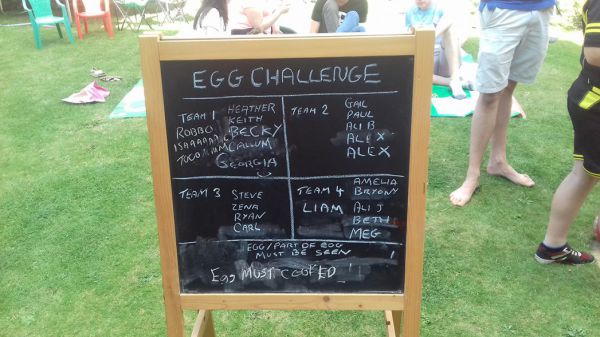 EGG CHALLENGE
TEAM 1 HEATHER
KEITH
ROBBO BECKY
CALLUM
GEORGIA
TEAM 2 GAIL
PAUL
ALI B
ALEX
ALEX
TEAM 3 STEVE
ZENA
RYAN
CARL
AMELIA
TEAM 4 BRYONY
LIAM ALI J
BETH
MEG
EGG/PART OF EGG
MUST BE SEEN !
Egg MUST COOKED !